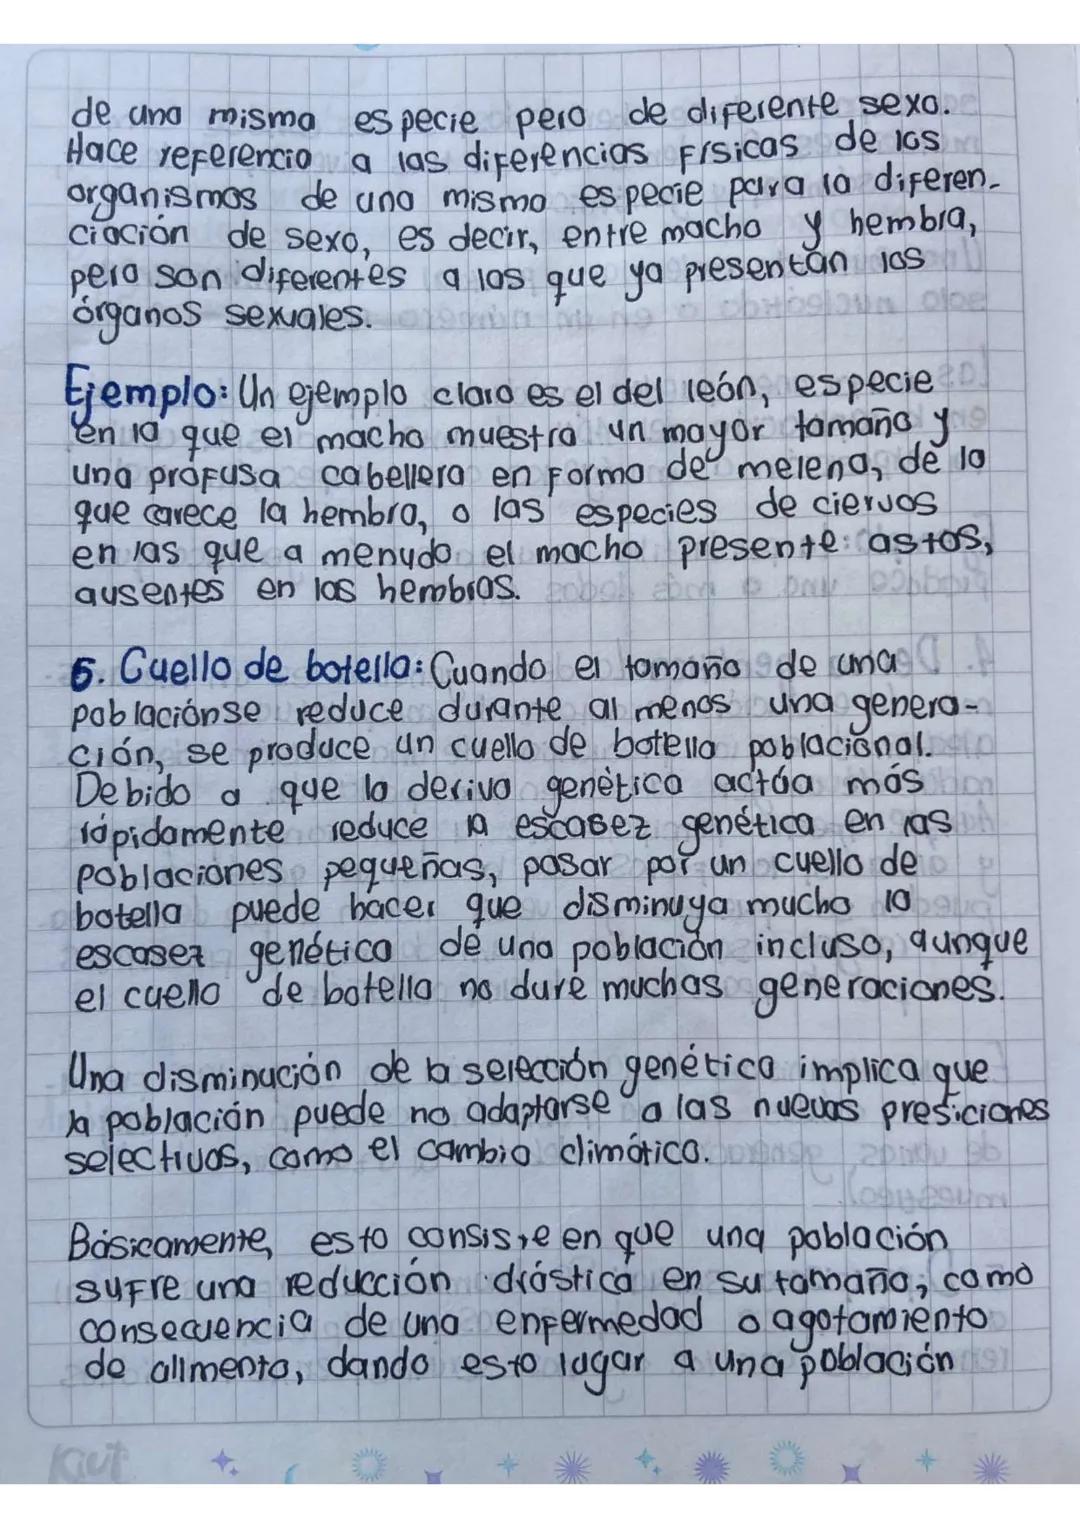 de una misma especie pero de diferente sexo.
Hace referencia a las diferencias físicas de los
organismos de una misma especie para la diferen-
ciación de sexo, es decir, entre macho y hembra,
pero son diferentes a los que ya presentan los
órganos sexuales.
Ejemplo: Un ejemplo claro es el del león, especie
en la que el macho muestra un mayor tamaño y
una profusa cabellera en forma de melena, de la
que carece la hembra, o las especies de ciervos
en las que a menudo el macho presente astos,
ausentes en las hembras.
6. Cuello de botella: Cuando el tamaño de una
poblaciónse reduce durante al menos una genera-
ción, se produce un cuello de botella poblacional.
Debido a que la deriva genètica actúa más
rápidamente reduce la escasez genética en las
poblaciones pequeñas, pasar por un cuello de
botella puede hacer que disminuya mucho la
escasez genética de una población incluso, aunque
el cuello de botella no dure muchas generaciones.
Una disminución de la selección genética implica que
la población puede no adaptarse a las nuevas presiciones
selectivas, como el cambio climático.
Básicamente, esto consiste en que una población
sufre una reducción drástica en su tamaño, como
consecuencia de una enfermedad o agotamiento
de alimento, dando esto lugar a una población
Kiut